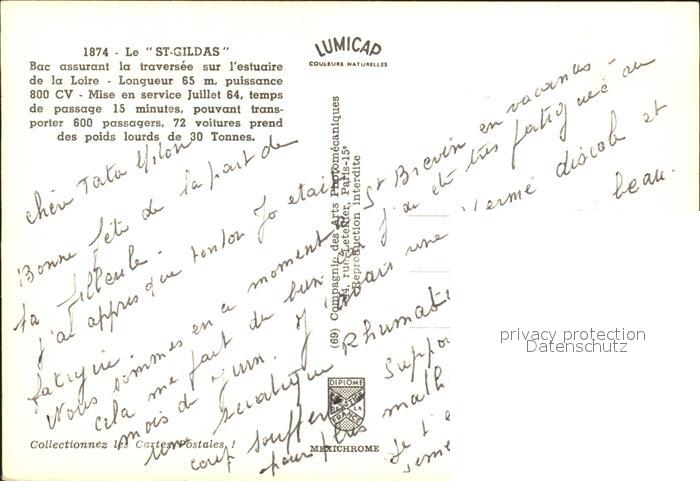 1874 - Le "ST-GILDAS"
Bac assurant la traversée sur l'estuaire
de la Loire - Longueur 65 m, puissance
800 CV - Mise en service Juillet 64, temps
de passage 15 minutes, pouvant trans-
porter 600 passagers, 72 voitures prend
des poids lourds de 30 Tonnes.
LUMICAP
COULEURS NATURELLES
chère Tata
Bonne fête de la part de
ta filleule.
J'ai appris que tonton Jo etait
fatigué.
Nous sommes en ce moment à St Brevin en vacances.
Cela me fait du bien. car j'ai été très fatiguée au
mois de Juin. J'avais une discale et
une sciatique Rhumati beau.
coup souffert Suppo
pour plus malh
Je t'e
seme
(69) Compagnie des Arts Photomécaniques
44, rue Letellier, Paris-15e
Reproduction interdite
DIPLOME
PRESTIGE
DE LA
FRANCE
MEXICHROME
Collectionnez les Cartes Postales !
privacy protection
Datenschutz